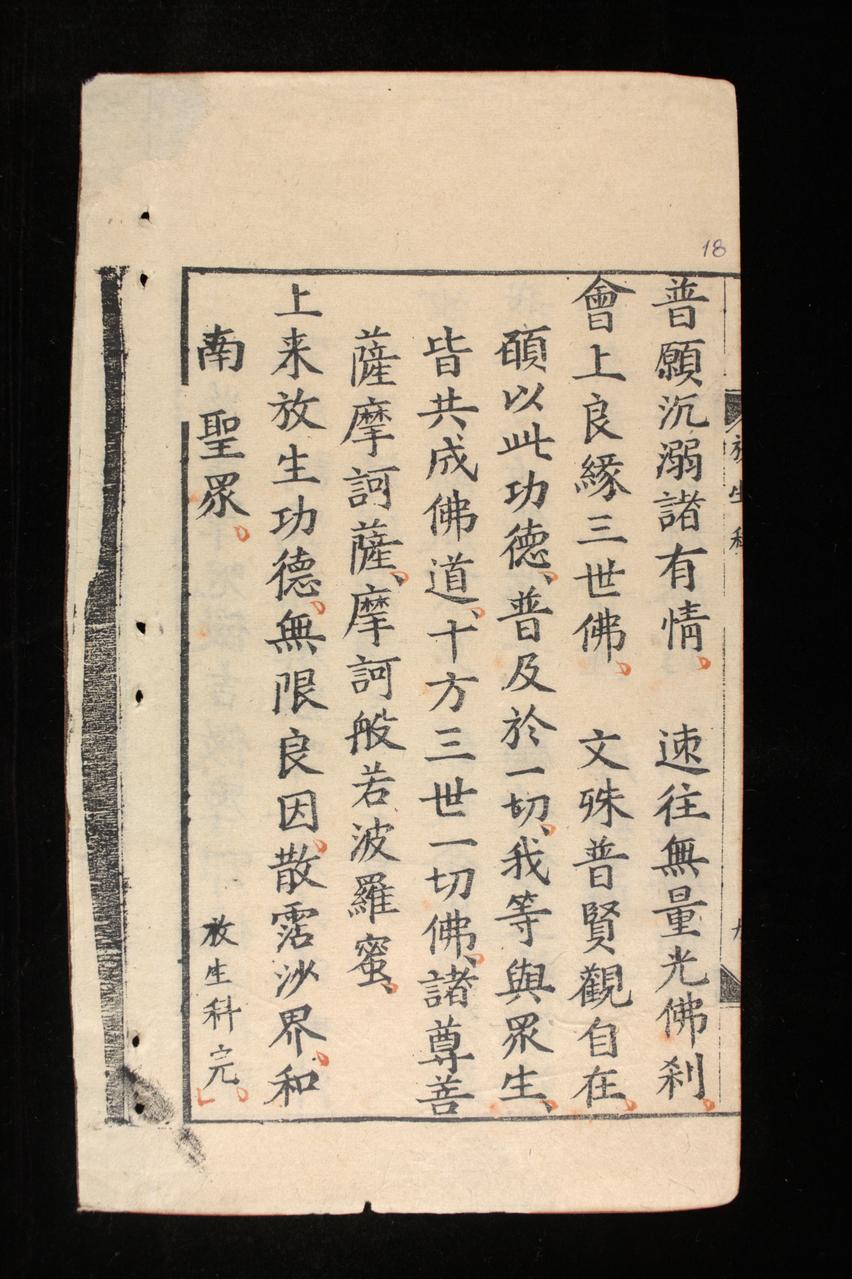 18
普願沉溺諸有情、 速往無量光佛刹、
會上良緣三世佛、 文殊普賢觀自在、
碩以此功德、普及於一切、我等與眾生、
皆共成佛道、十方三世一切佛、諸尊善
薩摩訶薩、摩訶般若波羅蜜、
上来放生功德、無限良因、散霑沙界、和
南 聖眾、
放生科完、
放生科